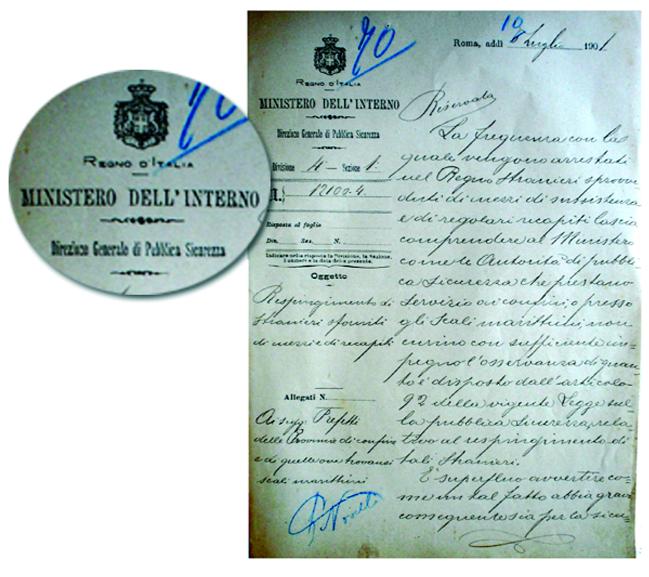 REGNO D'ITALIA
MINISTERO DELL'INTERNO
Direzione Generale di Pubblica Sicurezza
70
REGNO D'ITALIA
MINISTERO DELL'INTERNO
Direzione Generale di Pubblica Sicurezza
Divisione 4 - Sezione 1.
N. 12100.4.
Risposta al foglio
Div. Sez. N.
Indicare nella risposta la Divisione, la Sezione,
il numero e la data della presente.
Oggetto
Respingimento di
stranieri sforniti
di mezzi e di recapiti
Allegati N.
Ai sigg. Prefetti
delle Provincie di confine
e di quelle ove trovansi
scali marittimi
Roma, addì 10 Luglio 1901.
Riservata
La frequenza con la
quale vengono arrestati
nel Regno stranieri sprovve-
duti di mezzi di sussistenza
e di regolari recapiti lascia
comprendere al Ministero
come le Autorità di pubbli-
ca sicurezza che prestano
servizio ai confini, o presso
gli scali marittimi, non
curino con sufficiente im-
pegno l'osservanza di quan-
to è disposto dall'articolo
92 della vigente Legge sul-
la pubblica sicurezza, rela-
tivo al respingimento di
tali stranieri.
È superfluo avvertire co-
me un tal fatto abbia gravi
conseguenze sia per la sicu-